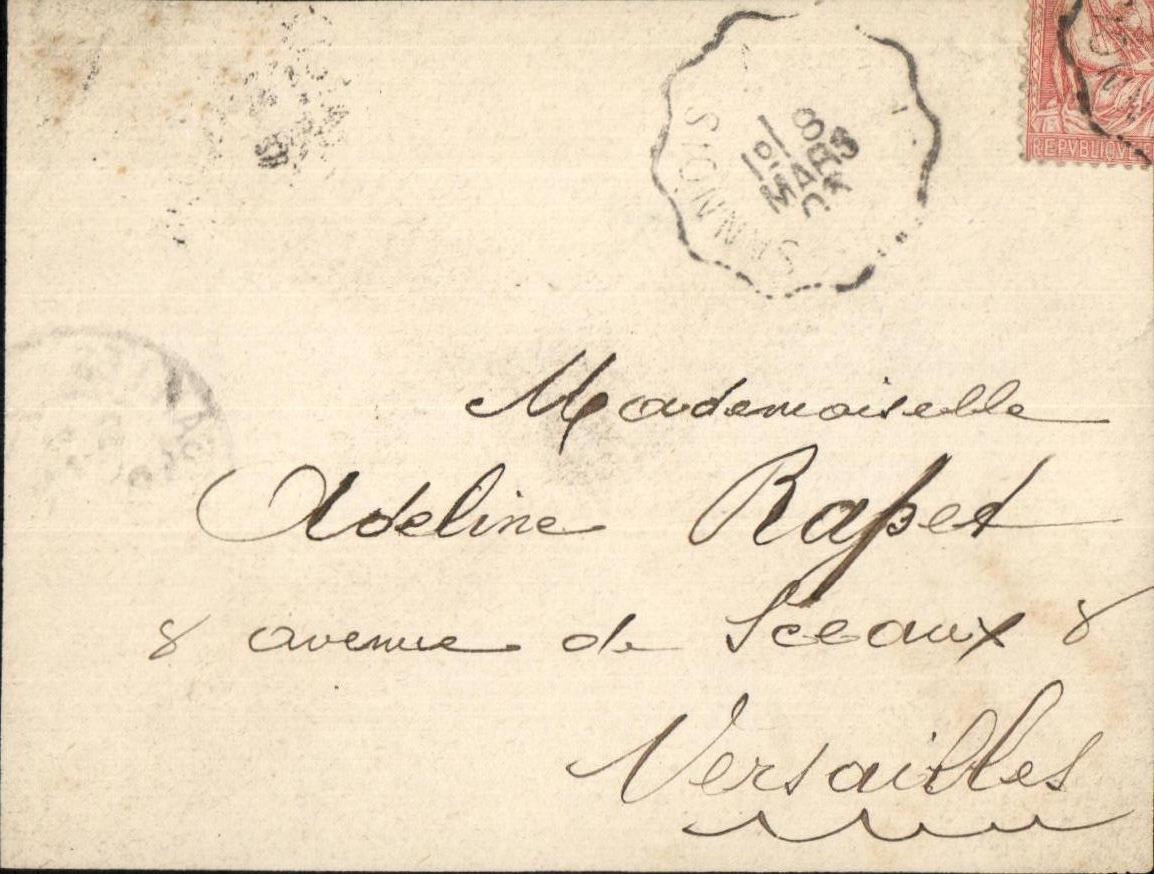 REPVBLIQVE
SANNOIS
8
MARS
Mademoiselle
Adeline Rapet
8 avenue de Sceaux 8
Versailles